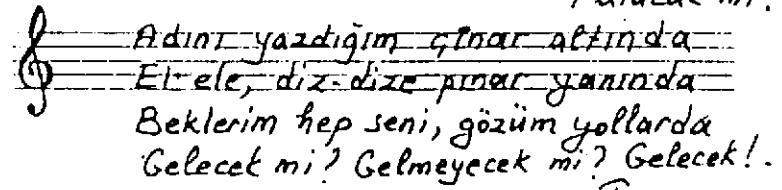 Adını yazdığım çınar altında
El-ele, diz-dize pınar yanında
Beklerim hep seni, gözüm yollarda
Gelecek mi? Gelmeyecek mi? Gelecek!.